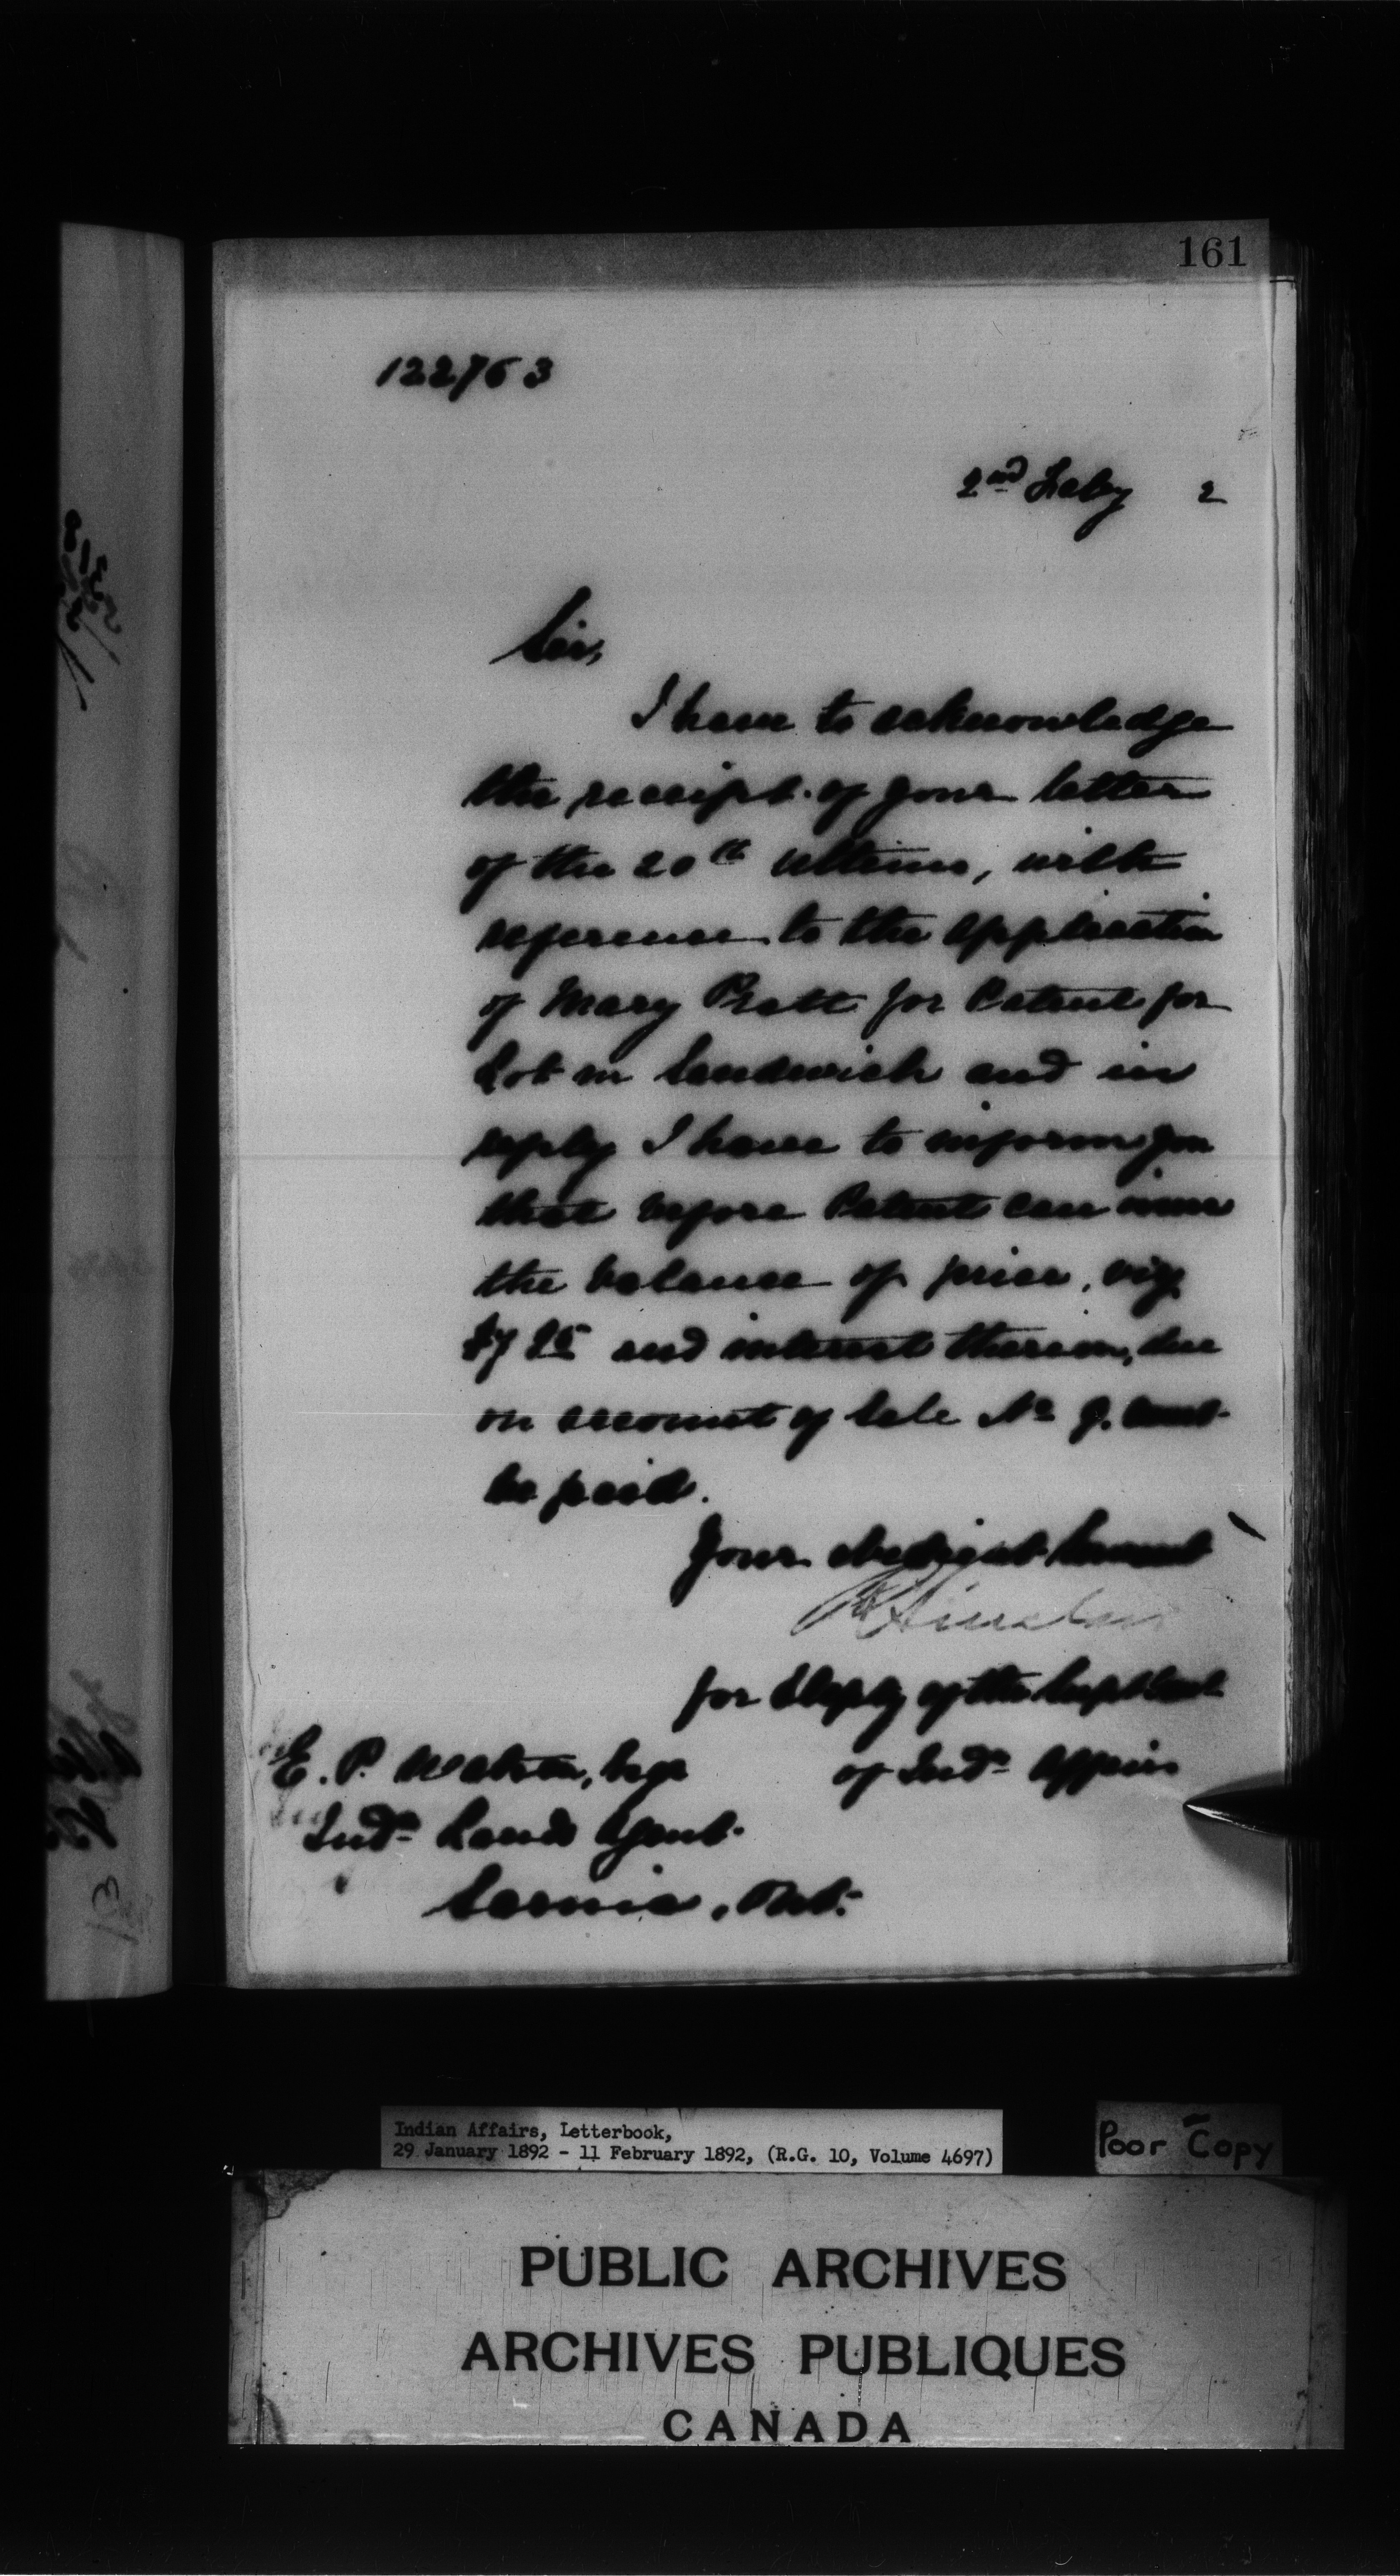 161
122763
2nd Feby 2
Sir,
I have to acknowledge
the receipt of your letter
of the 20th ultimo, with
reference to the application
of Mary Pratt for Patent for
Lot in Sandwich and in
reply I have to inform you
that before Patent can issue
the balance of price, viz
and interest thereon, due
on account of Sale No 9. must
be paid.
Your obedient Servant
R Sinclair
for Deputy of the Supt Genl
of Indn Affairs
E. P. Watson, Esqr
Indn Lands Agent
Sarnia, Ont.
Indian Affairs, Letterbook,
29 January 1892 - 11 February 1892, (R.G. 10, Volume 4697)
Poor Copy
PUBLIC ARCHIVES
ARCHIVES PUBLIQUES
CANADA